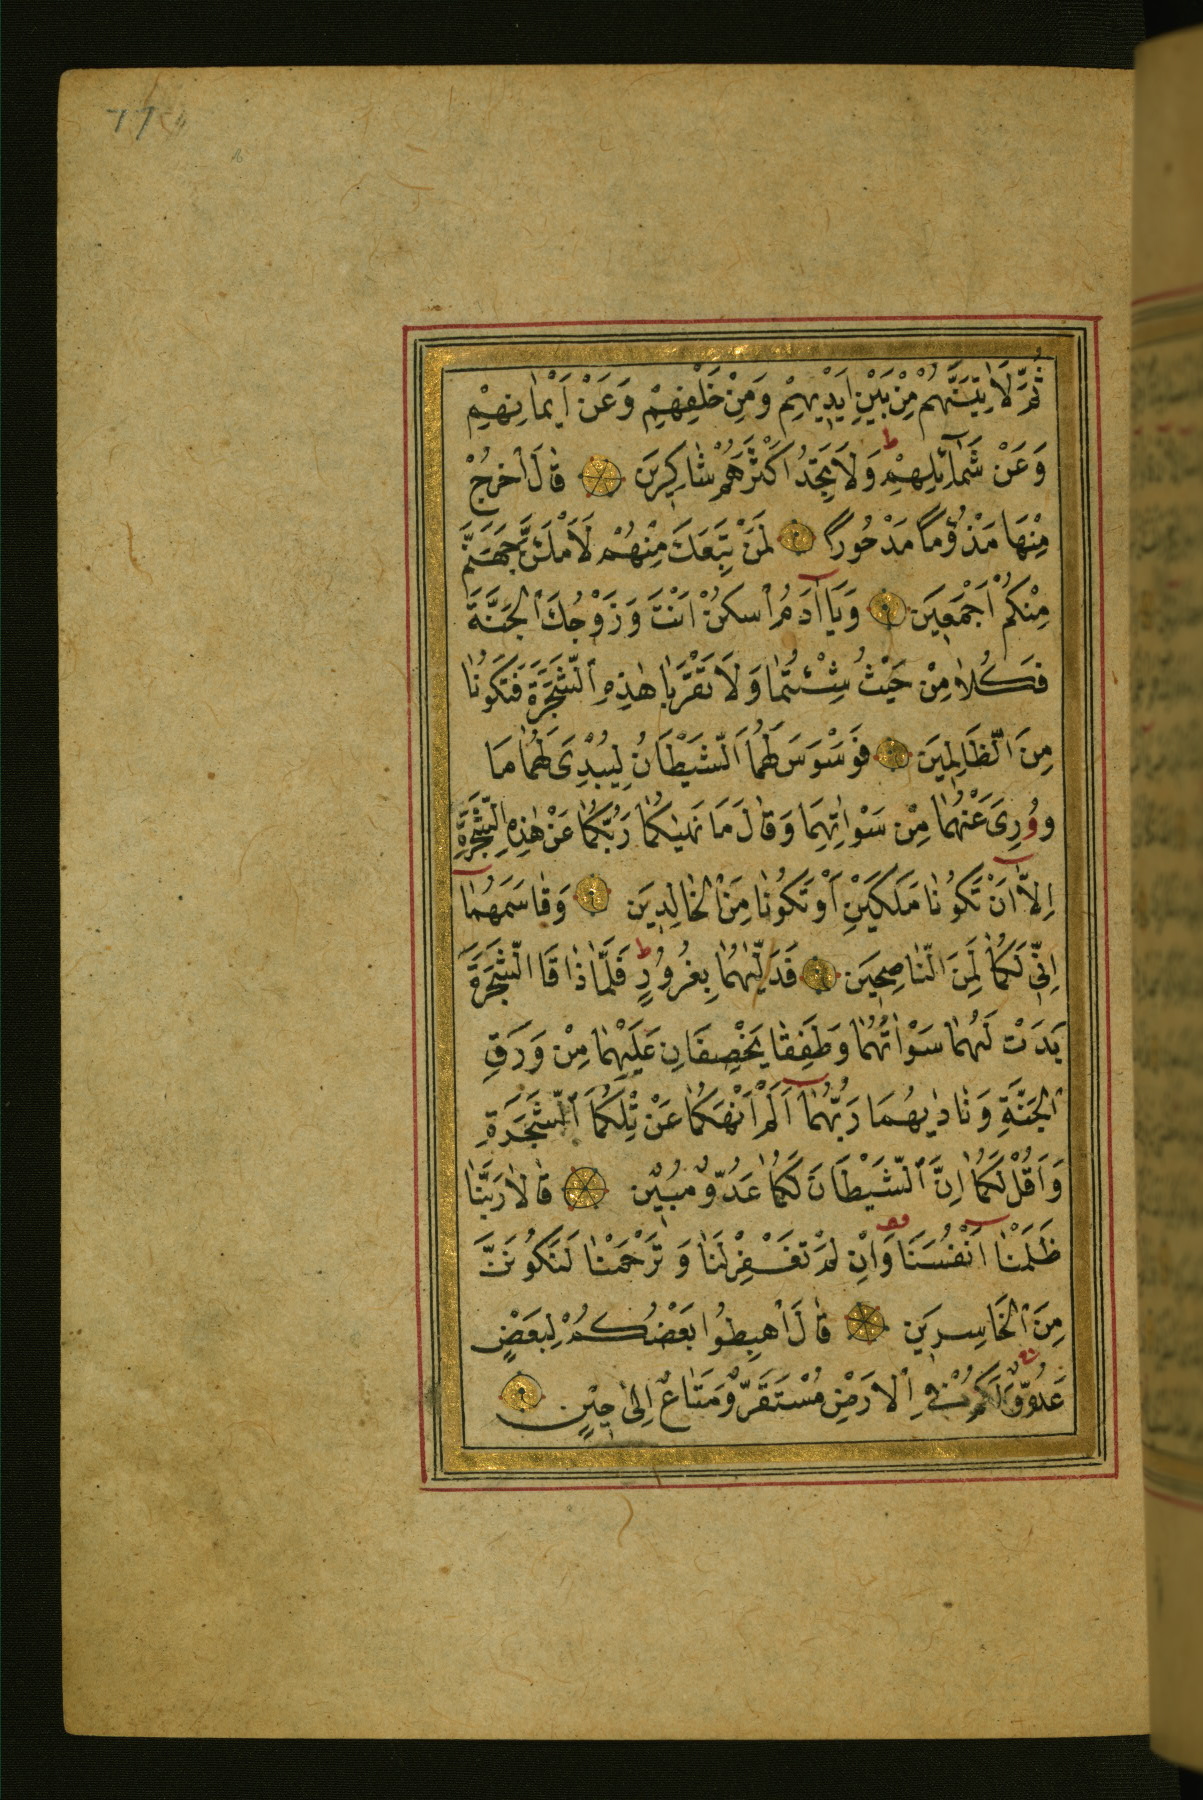 ثُمَّ لَاٰتِيَنَّهُمْ مِنْ بَيْنِ اَيْدِيهِمْ وَمِنْ خَلْفِهِمْ وَعَنْ اَيْمَانِهِمْ
وَعَنْ شَمَآئِلِهِمْ ط وَلَا تَجِدُ اَكْثَرَهُمْ شَاكِرِينَ قَالَ اخْرُجْ
مِنْهَا مَذْؤُمًا مَدْحُورًا لَمَنْ تَبِعَكَ مِنْهُمْ لَاَمْلَئَنَّ جَهَنَّمَ
مِنْكُمْ اَجْمَعِينَ وَيَا اٰدَمُ اسْكُنْ اَنْتَ وَزَوْجُكَ الْجَنَّةَ
فَكُلَا مِنْ حَيْثُ شِئْتُمَا وَلَا تَقْرَبَا هٰذِهِ الشَّجَرَةَ فَتَكُونَا
مِنَ الظَّالِمِينَ فَوَسْوَسَ لَهُمَا الشَّيْطَانُ لِيُبْدِيَ لَهُمَا مَا
وُورِيَ عَنْهُمَا مِنْ سَوْاٰتِهِمَا وَقَالَ مَا نَهٰيكُمَا رَبُّكُمَا عَنْ هٰذِهِ الشَّجَرَةِ
اِلَّا اَنْ تَكُونَا مَلَكَيْنِ اَوْ تَكُونَا مِنَ الْخَالِدِينَ وَقَاسَمَهُمَا
اِنِّي لَكُمَا لَمِنَ النَّاصِحِينَ فَدَلّٰيهُمَا بِغُرُورٍ ط فَلَمَّا ذَاقَا الشَّجَرَةَ
بَدَتْ لَهُمَا سَوْاٰتُهُمَا وَطَفِقَا يَخْصِفَانِ عَلَيْهِمَا مِنْ وَرَقِ
الْجَنَّةِ وَنَادٰيهُمَا رَبُّهُمَا اَلَمْ اَنْهَكُمَا عَنْ تِلْكُمَا الشَّجَرَةِ
وَاَقُلْ لَكُمَا اِنَّ الشَّيْطَانَ لَكُمَا عَدُوٌّ مُبِينٌ قَالَا رَبَّنَا
ظَلَمْنَا اَنْفُسَنَا وَاِنْ لَمْ تَغْفِرْ لَنَا وَتَرْحَمْنَا لَنَكُونَنَّ
مِنَ الْخَاسِرِينَ قَالَ اهْبِطُوا بَعْضُكُمْ لِبَعْضٍ
عَدُوٌّ وَلَكُمْ فِي الْاَرْضِ مُسْتَقَرٌّ وَمَتَاعٌ اِلٰى حِينٍ